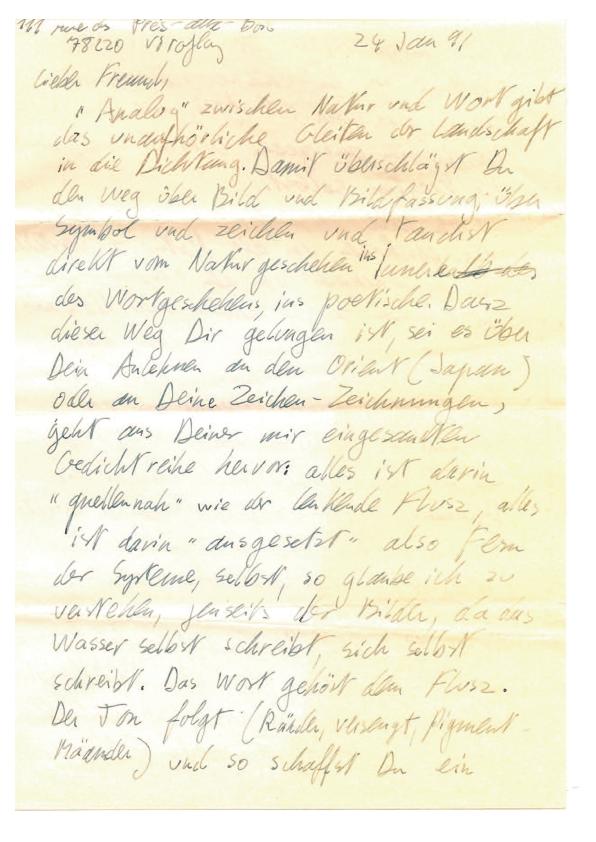 111 rue des Prés-aux-Bois
78220 Viroflay 24 Jan 91
Lieber Freund,
"Analog" zwischen Natur und Wort gibt
das unaufhörliche Gleiten der Landschaft
in die Dichtung. Damit überschlägst Du
den Weg über Bild und Bildfassung, über
Symbol und Zeichen und tauchst
direkt vom Naturgeschehen ins Innere
des Wortgeschehens, ins poetische. Dasz
dieser Weg Dir gelungen ist, sei es über
Dein Anlehnen an den Orient (Japan)
oder an Deine Zeichen-Zeichnungen,
geht aus Deiner mir eingesandten
Gedichtreihe hervor: alles ist darin
"quellennah" wie der lenkende Flusz, alles
ist darin "ausgesetzt" also fern
der Systeme, selbst, so glaube ich zu
verstehen, jenseits der Bilder, da das
Wasser selbst schreibt, sich selbst
schreibt. Das Wort gehört dem Flusz.
Der Ton folgt (Ränder, versengt, Pigment-
Mäander) und so schaffst Du ein